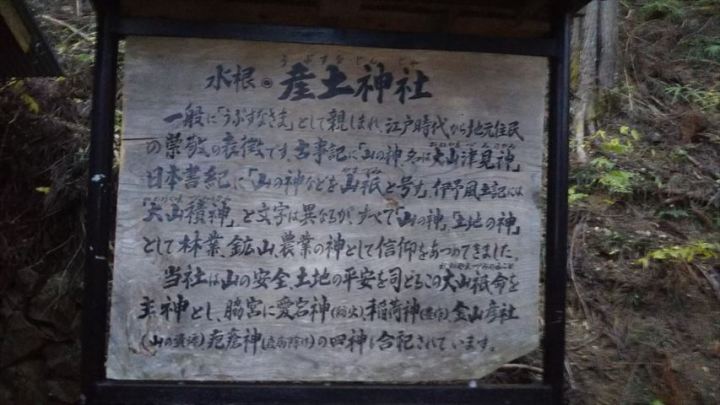 うぶすなじんじゃ
水根の産土神社
一般に「うぶすなさま」として親しまれ、江戸時代から地元住民
の崇敬の象徴です。古事記に「山の神、名は大山津見神」
日本書紀に「山の神などを山祇と号す」伊予風土記には
「大山積神」と文字は異なるが、すべて「山の神」「土地の神」
として林業、鉱山、農業の神として信仰をあつめてきました。
当社は山の安全、土地の平安を司どるこの大山祇命を
主神とし、脇宮に愛宕神(鎮火)稲荷神(農作)金山彦社
(山の資源)疱瘡神(疫病除け)の四神も合祀されています。